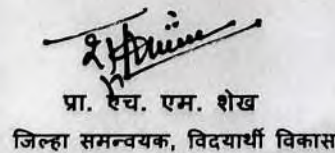 प्रा. एच. एम. शेख
जिल्हा समन्वयक, विदयार्थी विकास